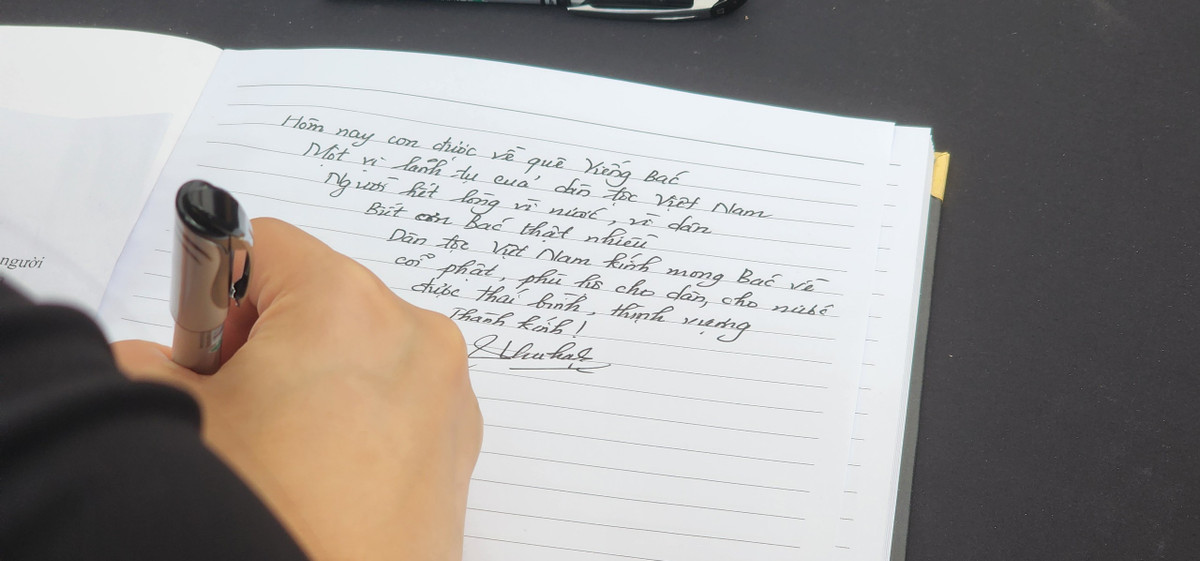 Hôm nay con được về quê viếng Bác
Một vị lãnh tụ của dân tộc Việt Nam
Người hết lòng vì nước, vì dân
Biết ơn Bác thật nhiều
Dân tộc Việt Nam kính mong Bác về
cõi phật, phù hộ cho dân, cho nước
được thái bình, thịnh vượng
Thành kính!
người